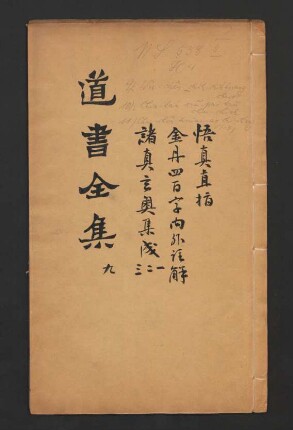 悟真直指
金丹四百字內外註解
諸真玄奧集成 一二三
道書全集 九